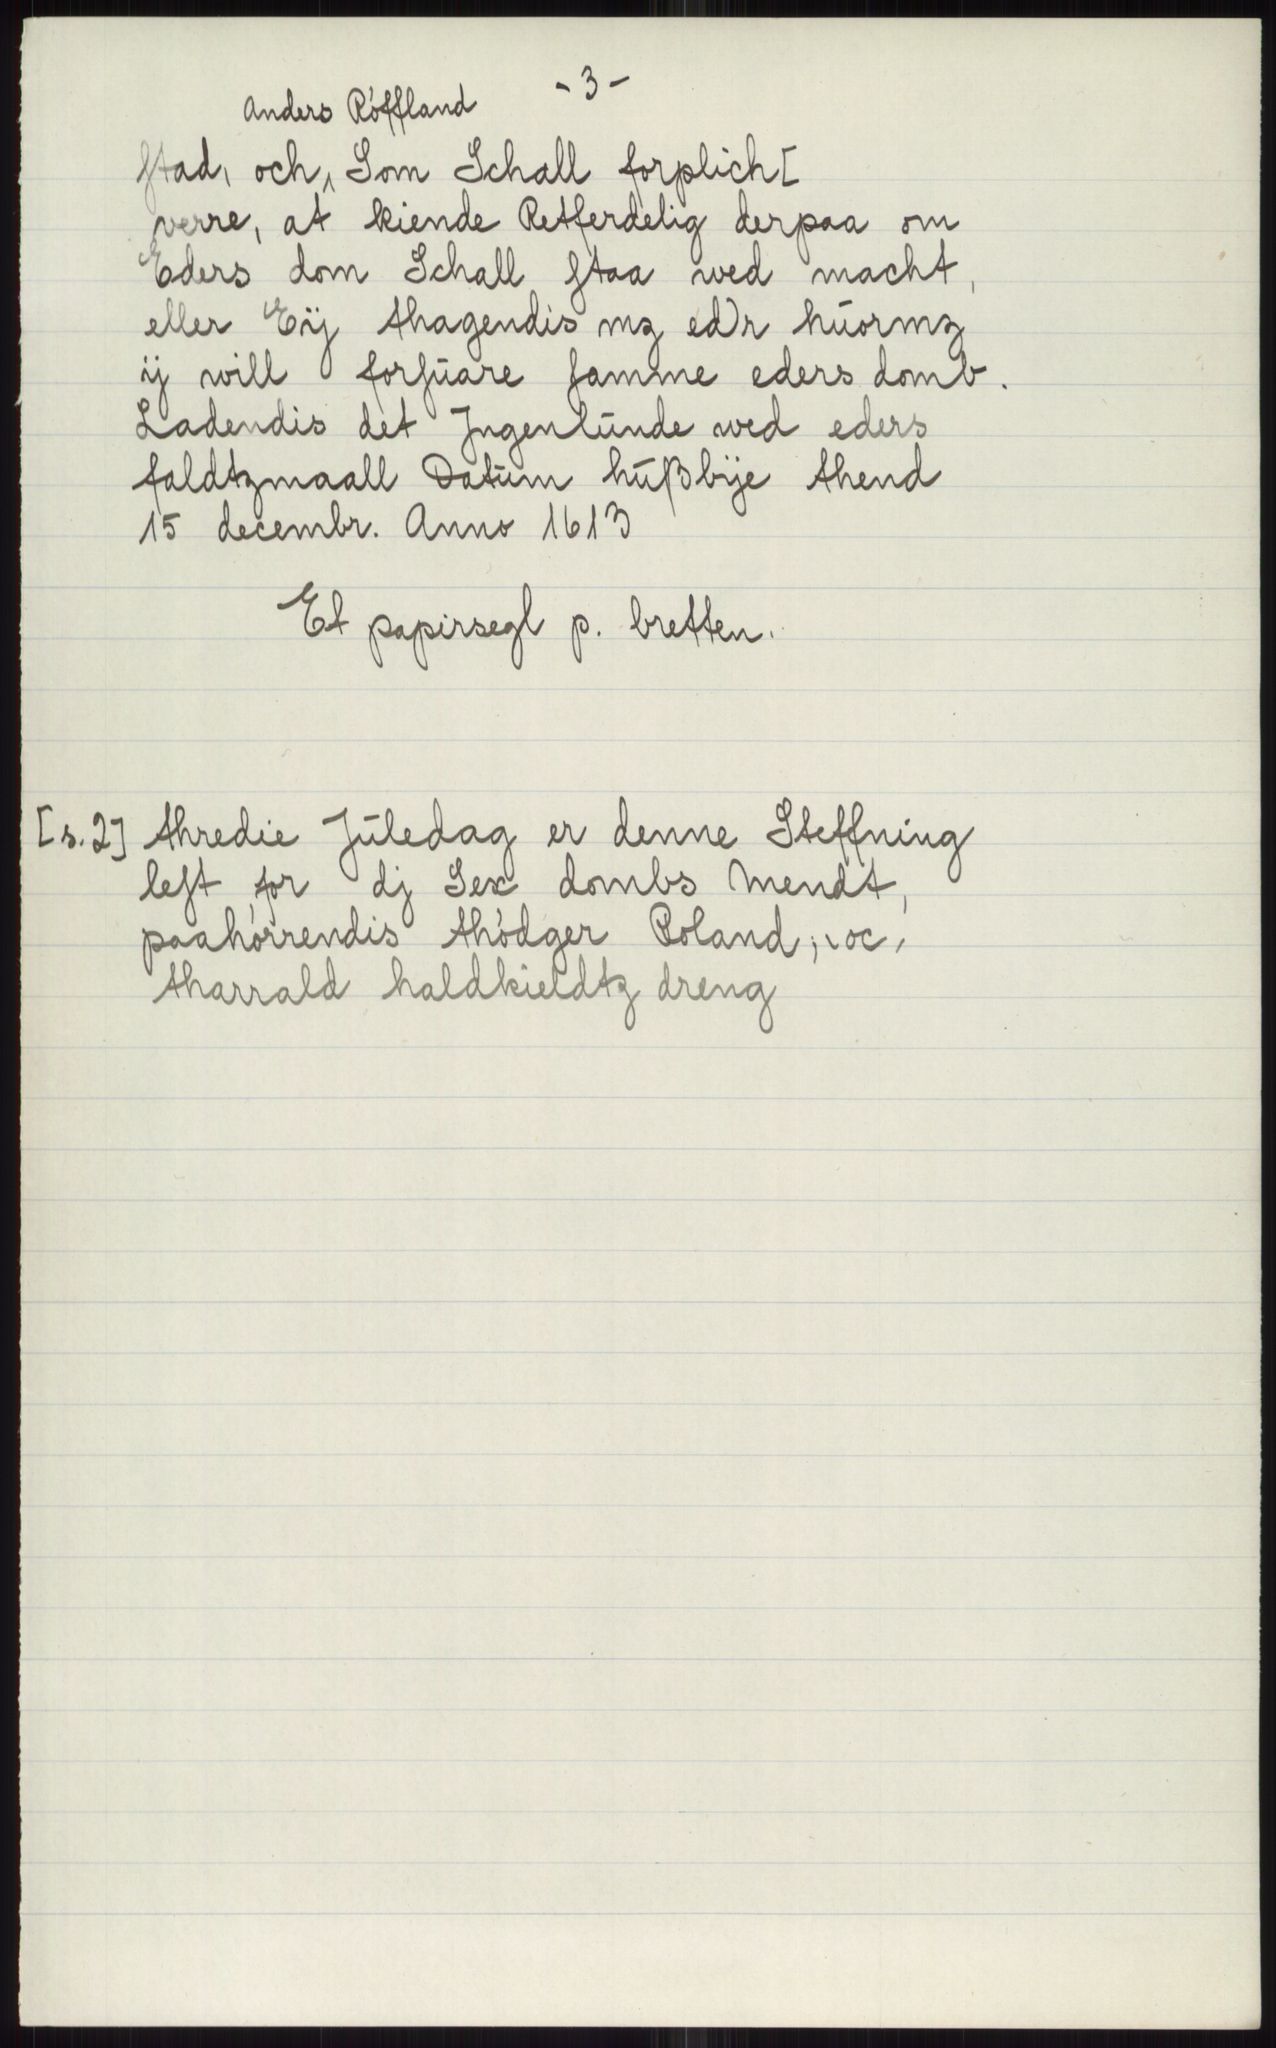 - 3 -
Anders Röffland
ſtad, och, Som Schall forplich[
verre, at kiende Retferdelig derpaa om
Eders dom Schall ſtaa wed macht,
eller Eÿ thagendis mz ed)r hüormz
ÿ will forſüare ſamme eders domb.
Ladendis det Jngenlünde wed eders
faldtzmaall Datüm hüßbÿe thend
15 decembr. Anno 1613
Et papirsegl p. bretten.
[s.2] thredie Jüledag er denne Steffning
leſt for dj Sex dombs Mendt,
paahörrendis thödger Roland, oc,
tharrald haldkieldtz dreng